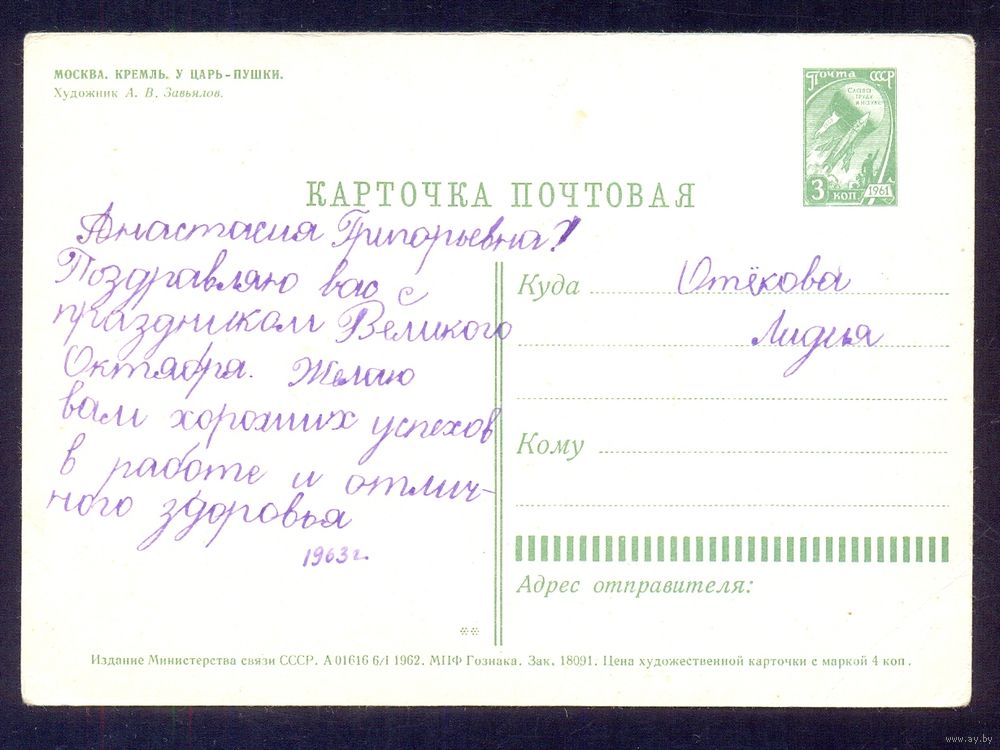 МОСКВА. КРЕМЛЬ. У ЦАРЬ-ПУШКИ.
Художник А. В. Завьялов.
Почта СССР
Слава
труду
и науке
3 коп
1961
КАРТОЧКА ПОЧТОВАЯ
Анастасия Григорьевна!
Поздравляю вас с
праздником Великого
Октября. Желаю
вам хороших успехов
в работе и отлич-
ного здоровья
1963 г.
Куда Отёкова
Лидия
Кому
Адрес отправителя:
Издание Министерства связи СССР. А 01616 6/I 1962. МПФ Гознака. Зак. 18091. Цена художественной карточки с маркой 4 коп.
www.ay.by